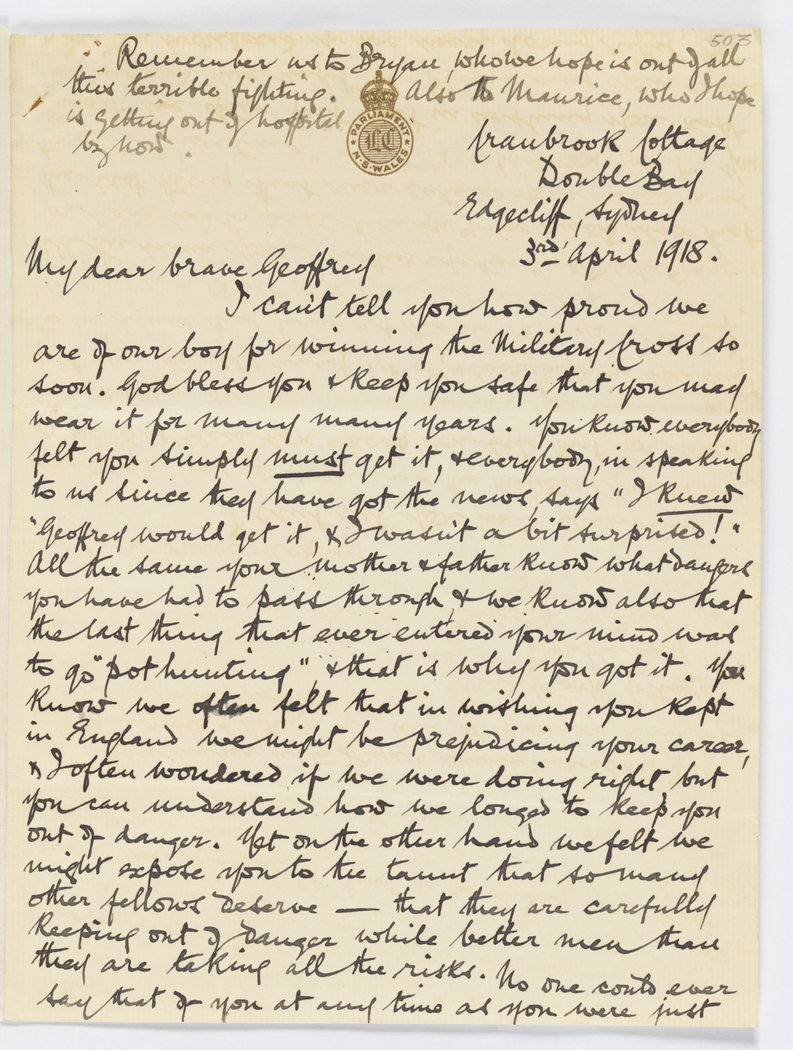 505
Remember us to Bryan, who we hope is out of all
this terrible fighting. Also to Maurice, who I hope
is getting out of hospital
by now.
PARLIAMENT
LC
N·S·WALES
Cranbrook Cottage
Double Bay
Edgecliff, Sydney
3rd April 1918.
My dear brave Geoffrey
I can't tell you how proud we
are of our boy for winning the Military Cross so
soon. God bless you & keep you safe that you may
wear it for many many years. You know everybody
felt you simply must get it, & everybody, in speaking
to us since they have got the news, says "I knew
"Geoffrey would get it, & I wasn't a bit surprised!"
All the same your mother & father know what dangers
you have had to pass through, & we know also that
the last thing that ever entered your mind was
to go "pot hunting", & that is why you got it. You
know we often felt that in wishing you kept
in England we might be prejudicing your career,
& I often wondered if we were doing right, but
you can understand how we longed to keep you
out of danger. Yet on the other hand we felt we
might expose you to the taunt that so many
other fellows deserve — that they are carefully
keeping out of danger while better men than
they are taking all the risks. No one could ever
say that of you at any time as you were just